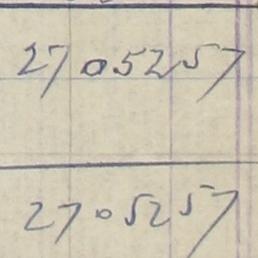 2705257
2705257